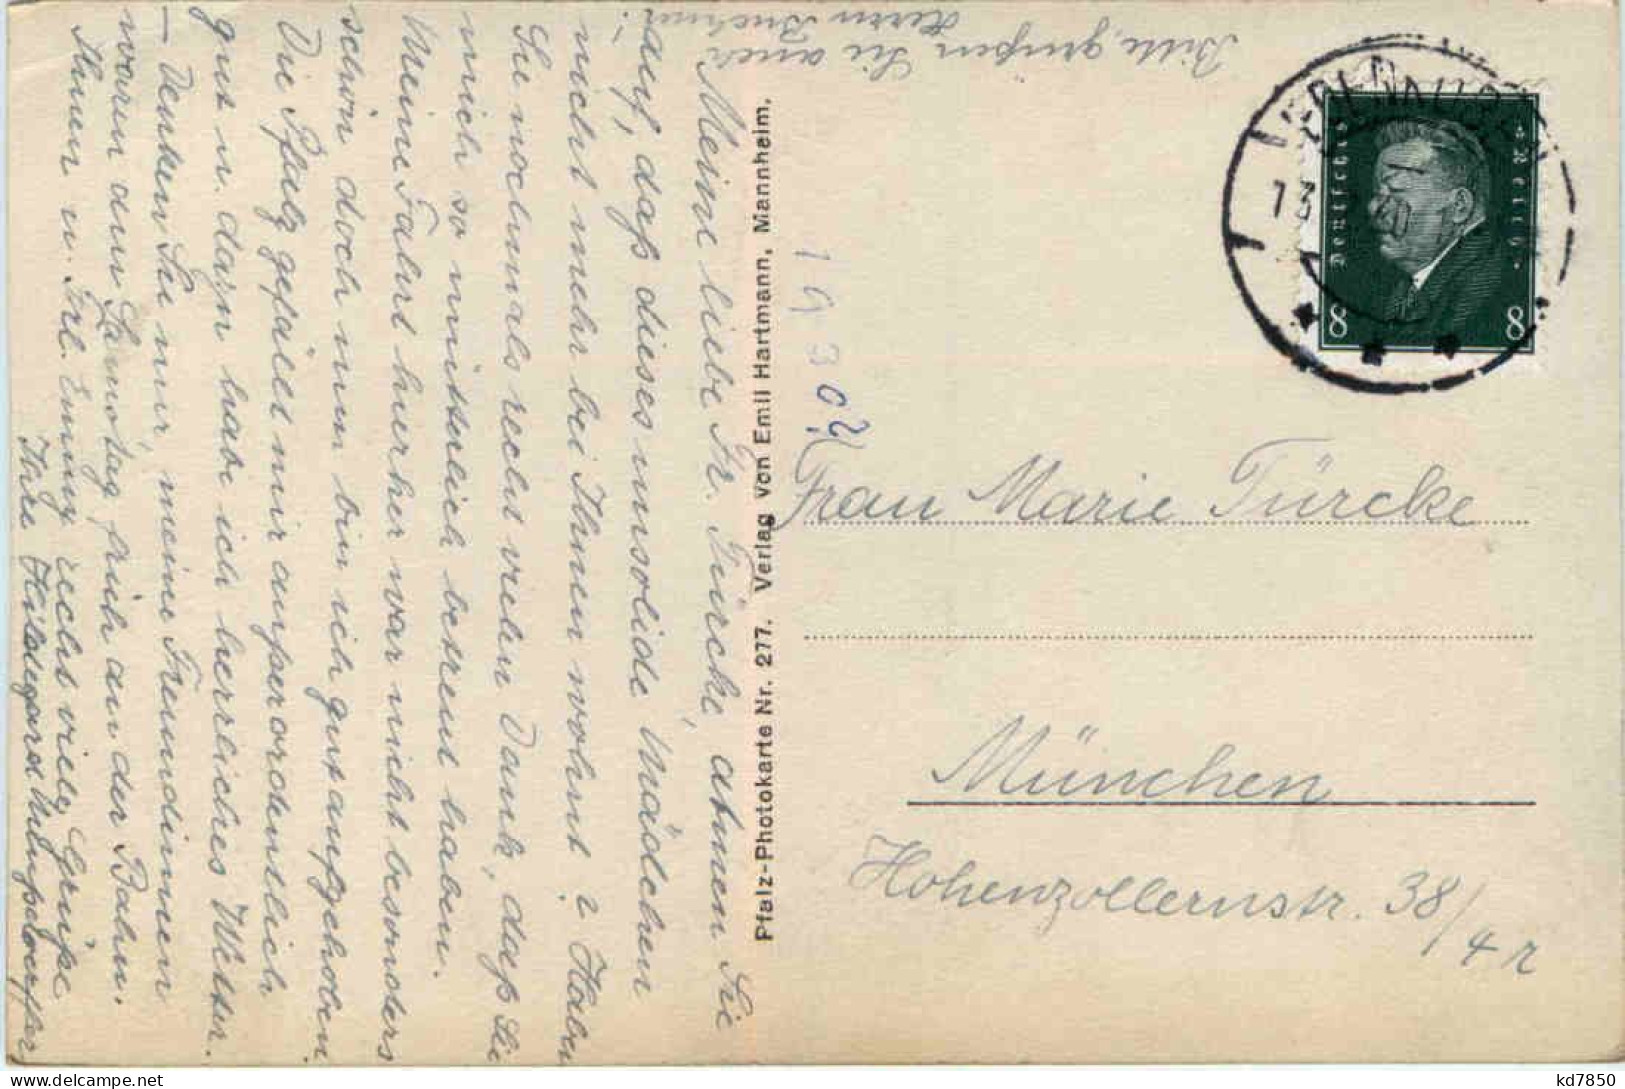 Meine liebe Fr. Türcke, atmen Sie
auf, daß dieses unsolide Mädchen
nicht mehr bei Ihnen wohnt? Haben
Sie nochmals recht vielen Dank, daß Sie
mich so mütterlich betreut haben.
Meine Fahrt hierher war nicht besonders
schön doch nun bin ich gut aufgehoben.
Die Pfalz gefällt mir außerordentlich
gut u. dazu habe ich herrliches Wetter.
– Denken Sie nur, meine Freundinnen
waren am Samstag früh an der Bahn.
Ihnen u. Frl. Emmy recht viele Grüße
Ihre Hildegard
Bitte, grüßen Sie auch
Herrn
Pfalz-Photokarte Nr. 277. Verlag von Emil Hartmann, Mannheim.
1930?
Deutsches Reich
8 8
13
30
Frau Marie Türcke
München
Hohenzollernstr. 38/4 r
kd7850